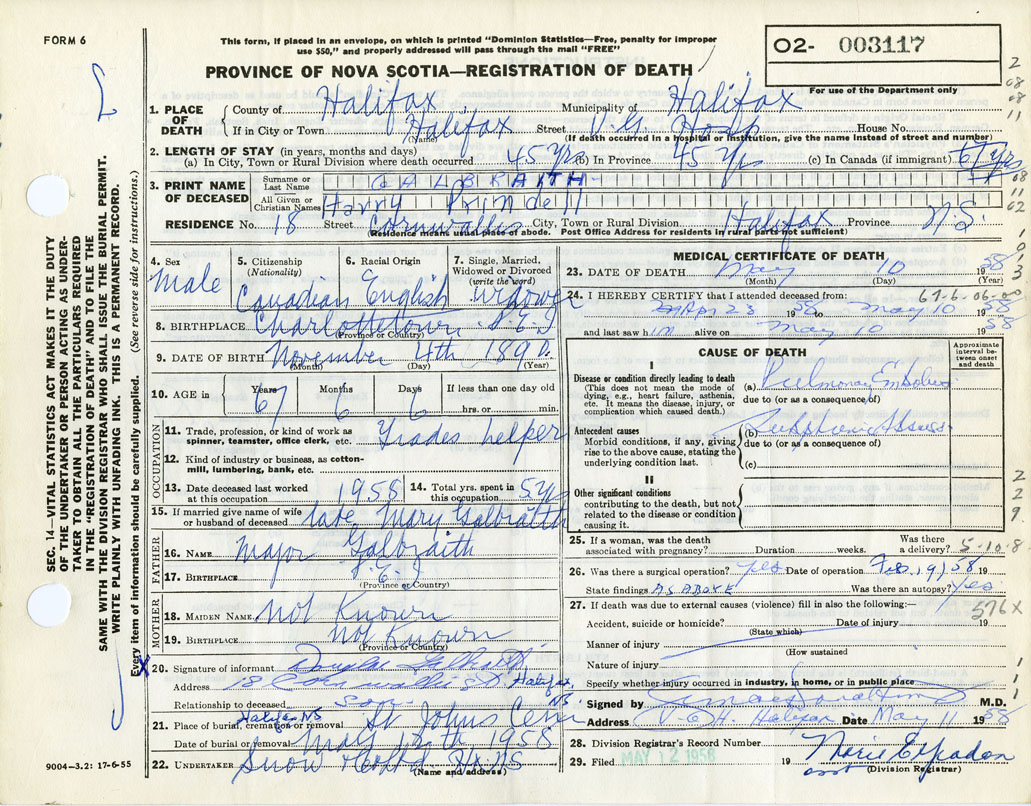 FORM 6
This form, if placed in an envelope, on which is printed "Dominion Statistics—Free, penalty for improper
use $50," and properly addressed will pass through the mail "FREE"
PROVINCE OF NOVA SCOTIA—REGISTRATION OF DEATH
02- 003117
For use of the Department only
1. PLACE OF DEATH { County of Halifax Municipality of Halifax
If in City or Town Halifax Street V.G. Hosp House No.
(Name) (If death occurred in a hospital or institution, give the name instead of street and number)
2. LENGTH OF STAY (in years, months and days)
(a) In City, Town or Rural Division where death occurred 45 yrs (b) In Province 45 yrs (c) In Canada (if immigrant) 67 yrs
3. PRINT NAME OF DECEASED { Surname or Last Name GALBRAITH
All Given or Christian Names Harry
RESIDENCE No. 18 Street Cornwallis City, Town or Rural Division Halifax Province N.S.
(Residence means usual place of abode. Post Office Address for residents in rural parts not sufficient)
4. Sex Male
5. Citizenship (Nationality) Canadian
6. Racial Origin English
7. Single, Married, Widowed or Divorced (write the word)
8. BIRTHPLACE Charlottetown P.E.I
(Province or Country)
9. DATE OF BIRTH November 4th 1890
(Month) (Day) (Year)
10. AGE in { Years 67 Months 6 Days 6 If less than one day old
hrs. or min.
OCCUPATION
11. Trade, profession, or kind of work as spinner, teamster, office clerk, etc. Trades helper
12. Kind of industry or business, as cotton-mill, lumbering, bank, etc.
13. Date deceased last worked at this occupation 1958 14. Total yrs. spent in this occupation 5 yrs
15. If married give name of wife or husband of deceased late Mary Galbraith
FATHER
16. NAME Major Galbraith
17. BIRTHPLACE P.E.I
(Province or Country)
MOTHER
18. MAIDEN NAME Not Known
19. BIRTHPLACE Not Known
(Province or Country)
X 20. Signature of informant Douglas Galbraith
Address 18 Cornwallis St. Halifax, NS
Relationship to deceased son
21. Place of burial, cremation or removal Halifax NS St Johns Cem
Date of burial or removal May 12th 1958
22. UNDERTAKER Snow & Co Ltd Hx NS
(Name and address)
MEDICAL CERTIFICATE OF DEATH
23. DATE OF DEATH May 10 1958
(Month) (Day) (Year)
24. I HEREBY CERTIFY that I attended deceased from: 67-6-06-00
Apr 23 1958 to May 10 1958
and last saw him alive on May 10 1958
CAUSE OF DEATH
Approximate interval between onset and death
I
Disease or condition directly leading to death
(This does not mean the mode of dying, e.g., heart failure, asthenia, etc. It means the disease, injury, or complication which caused death.)
(a) Pulmonary Embolus
due to (or as a consequence of)
Antecedent causes
Morbid conditions, if any, giving rise to the above cause, stating the underlying condition last.
(b) Subphrenic Abscess
due to (or as a consequence of)
(c)
II
Other significant conditions contributing to the death, but not related to the disease or condition causing it.
25. If a woman, was the death associated with pregnancy? Duration weeks. Was there a delivery? 5-10-8
26. Was there a surgical operation? Yes Date of operation Feb. 19/58 19
State findings AS ABOVE Was there an autopsy? Yes
27. If death was due to external causes (violence) fill in also the following:— 576X
Accident, suicide or homicide? Date of injury 19
(State which)
Manner of injury
(How sustained
Nature of injury
Specify whether injury occurred in industry, in home, or in public place
Signed by M.D.
Address V.G.H. Halifax Date May 11 1958
28. Division Registrar's Record Number
29. Filed MAY 12 1958 19
(Division Registrar)
SEC. 14—VITAL STATISTICS ACT MAKES IT THE DUTY
OF THE UNDERTAKER OR PERSON ACTING AS UNDER-
TAKER TO OBTAIN ALL THE PARTICULARS REQUIRED
IN THE "REGISTRATION OF DEATH" AND TO FILE THE
SAME WITH THE DIVISION REGISTRAR WHO SHALL ISSUE THE BURIAL PERMIT.
WRITE PLAINLY WITH UNFADING INK. THIS IS A PERMANENT RECORD.
Every item of information should be carefully supplied. (See reverse side for instructions.)
9004—3.2: 17-6-55